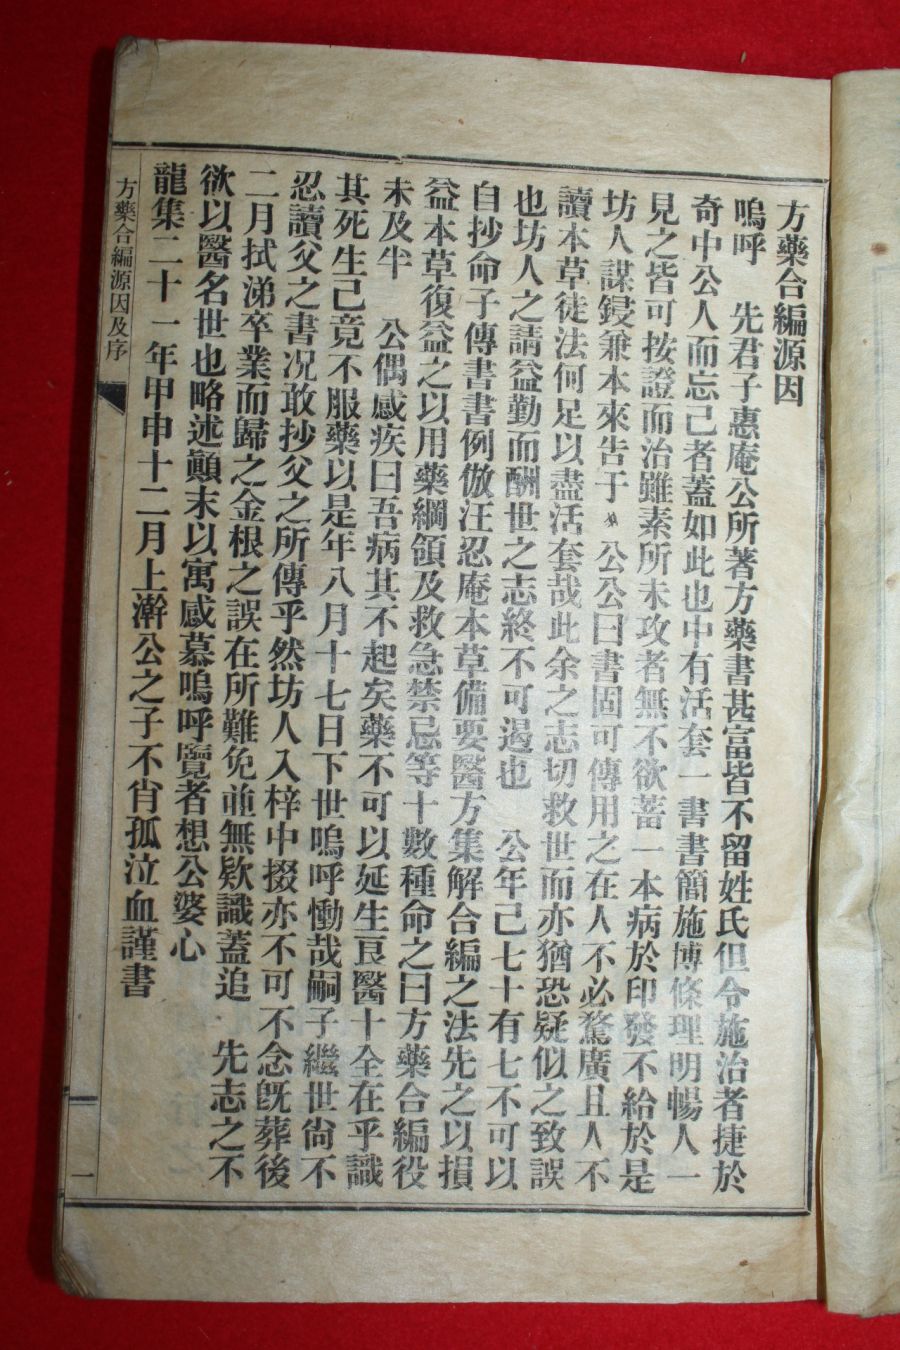 方藥合編源因
嗚呼　先君子惠庵公所著方藥書甚富皆不留姓氏但令施治者捷於
奇中公人而忘己者蓋如此也中有活套一書書簡施博條理明暢人一
見之皆可按證而治雖素所未攻者無不欲蓄一本病於印發不給於是
坊人謀鋟兼本來告于　公公曰書固可傳用之在人不必騖廣且人不
讀本草徒法何足以盡活套哉此余之志切救世而亦猶恐疑似之致誤
也坊人之請益勤而酬世之志終不可遏也　公年己七十有七不可以
自抄命子傳書書例倣汪忍庵本草備要醫方集解合編之法先之以損
益本草復益之以用藥綱領及救急禁忌等十數種命之曰方藥合編役
未及半　公偶感疾曰吾病其不起矣藥不可以延生良醫十全在乎識
其死生己竟不服藥以是年八月十七日下世嗚呼慟哉嗣子繼世尙不
忍讀父之書况敢抄父之所傳乎然坊人入梓中掇亦不可不念旣葬後
二月拭涕卒業而歸之金根之誤在所難免並無欵識蓋追　先志之不
欲以醫名世也略述顚末以寓感慕嗚呼覽者想公婆心
龍集二十一年甲申十二月上澣公之子不肖孤泣血謹書
方藥合編源因及序
一